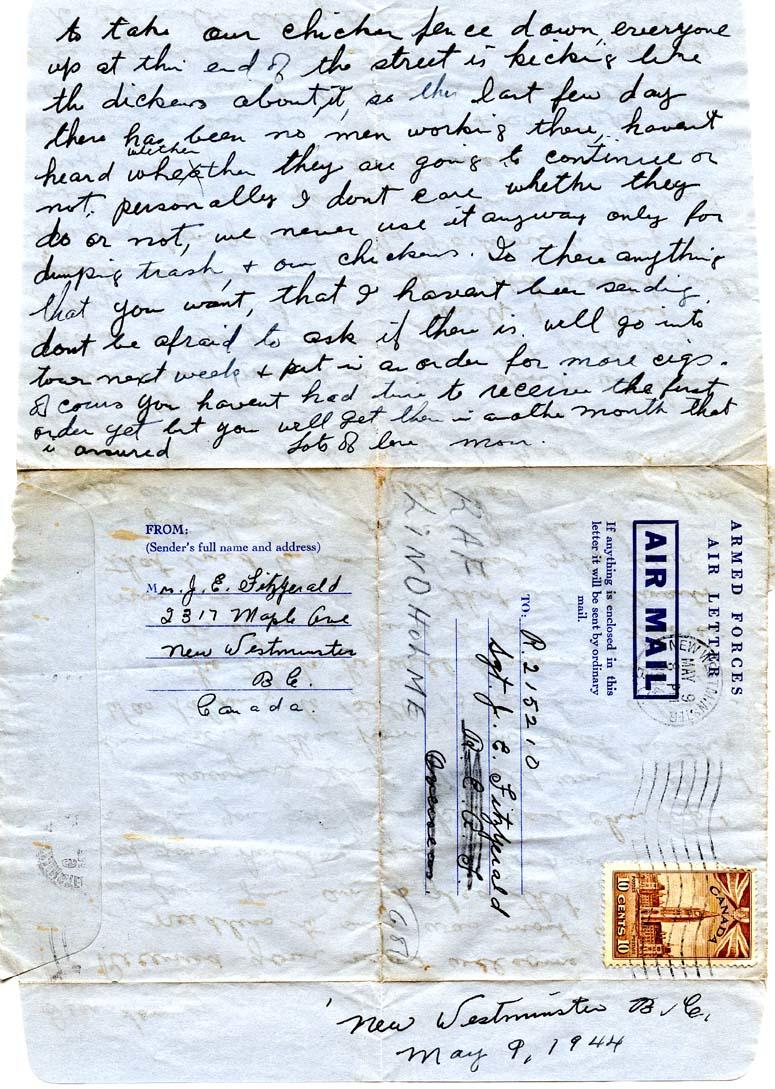 to take our chicken fence down, everyone
up at this end of the street is kicking like
the dickens about it, so the last few day
there has been no men working there, havent
heard whether they are going to continue or
not. personally I dont care whether they
do or not, we never use it anyway only for
dumping trash, & our chickens. Is there anything
that you want, that I havent been sending,
dont be afraid to ask if there is. will go into
town next week & put in an order for more cigs.
of cours you havent had time to receive the first
order yet but you will get them in another month that
is assured Lots of love mom.
FROM:
(Sender's full name and address)
Mrs. J. E. Fitzgerald
2317 Maple Ave
New Westminster
B C.
Canada.
ARMED FORCES
AIR LETTER
AIR MAIL
If anything is enclosed in this
letter it will be sent by ordinary
mail.
NEW WESTMINSTER
MAY 9
CANADA
10 CENTS 10
TO:
R. 215210
Sgt. J. E. Fitzgerald
R. C. A. F.
Overseas
RAF
LINDHOLME
687
New Westminster B.C.
May 9, 1944